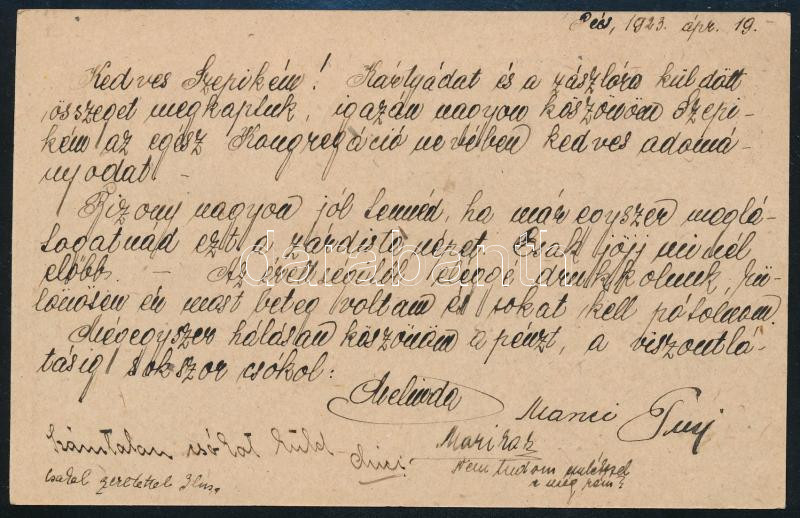 Pécs, 1923. ápr. 19.
Kedves Szepikém! Kártyádat és a zászlóra küldött
összeget megkaptuk, igazán nagyon köszönöm Szepi-
kém az egész Kongregáció nevében kedves adomá-
nyodat -
Bizony nagyon jól tennéd, ha már egyszer meglá-
togatnád ezt a zárdista népet. Csak jöjj minél
előbb. - Az érettségitől eléggé drukkolunk, kü-
lönösen én most beteg voltam és sokat kell pótolnom
Mégegyszer hálásan köszönöm a pénzt, a viszontlá-
tásig sokszor csókol:
Melinda
Manci
Számtalan csókot küld
Mariska
csókol szeretettel
Nem tudom emlékszel
e még rám?
darabanth